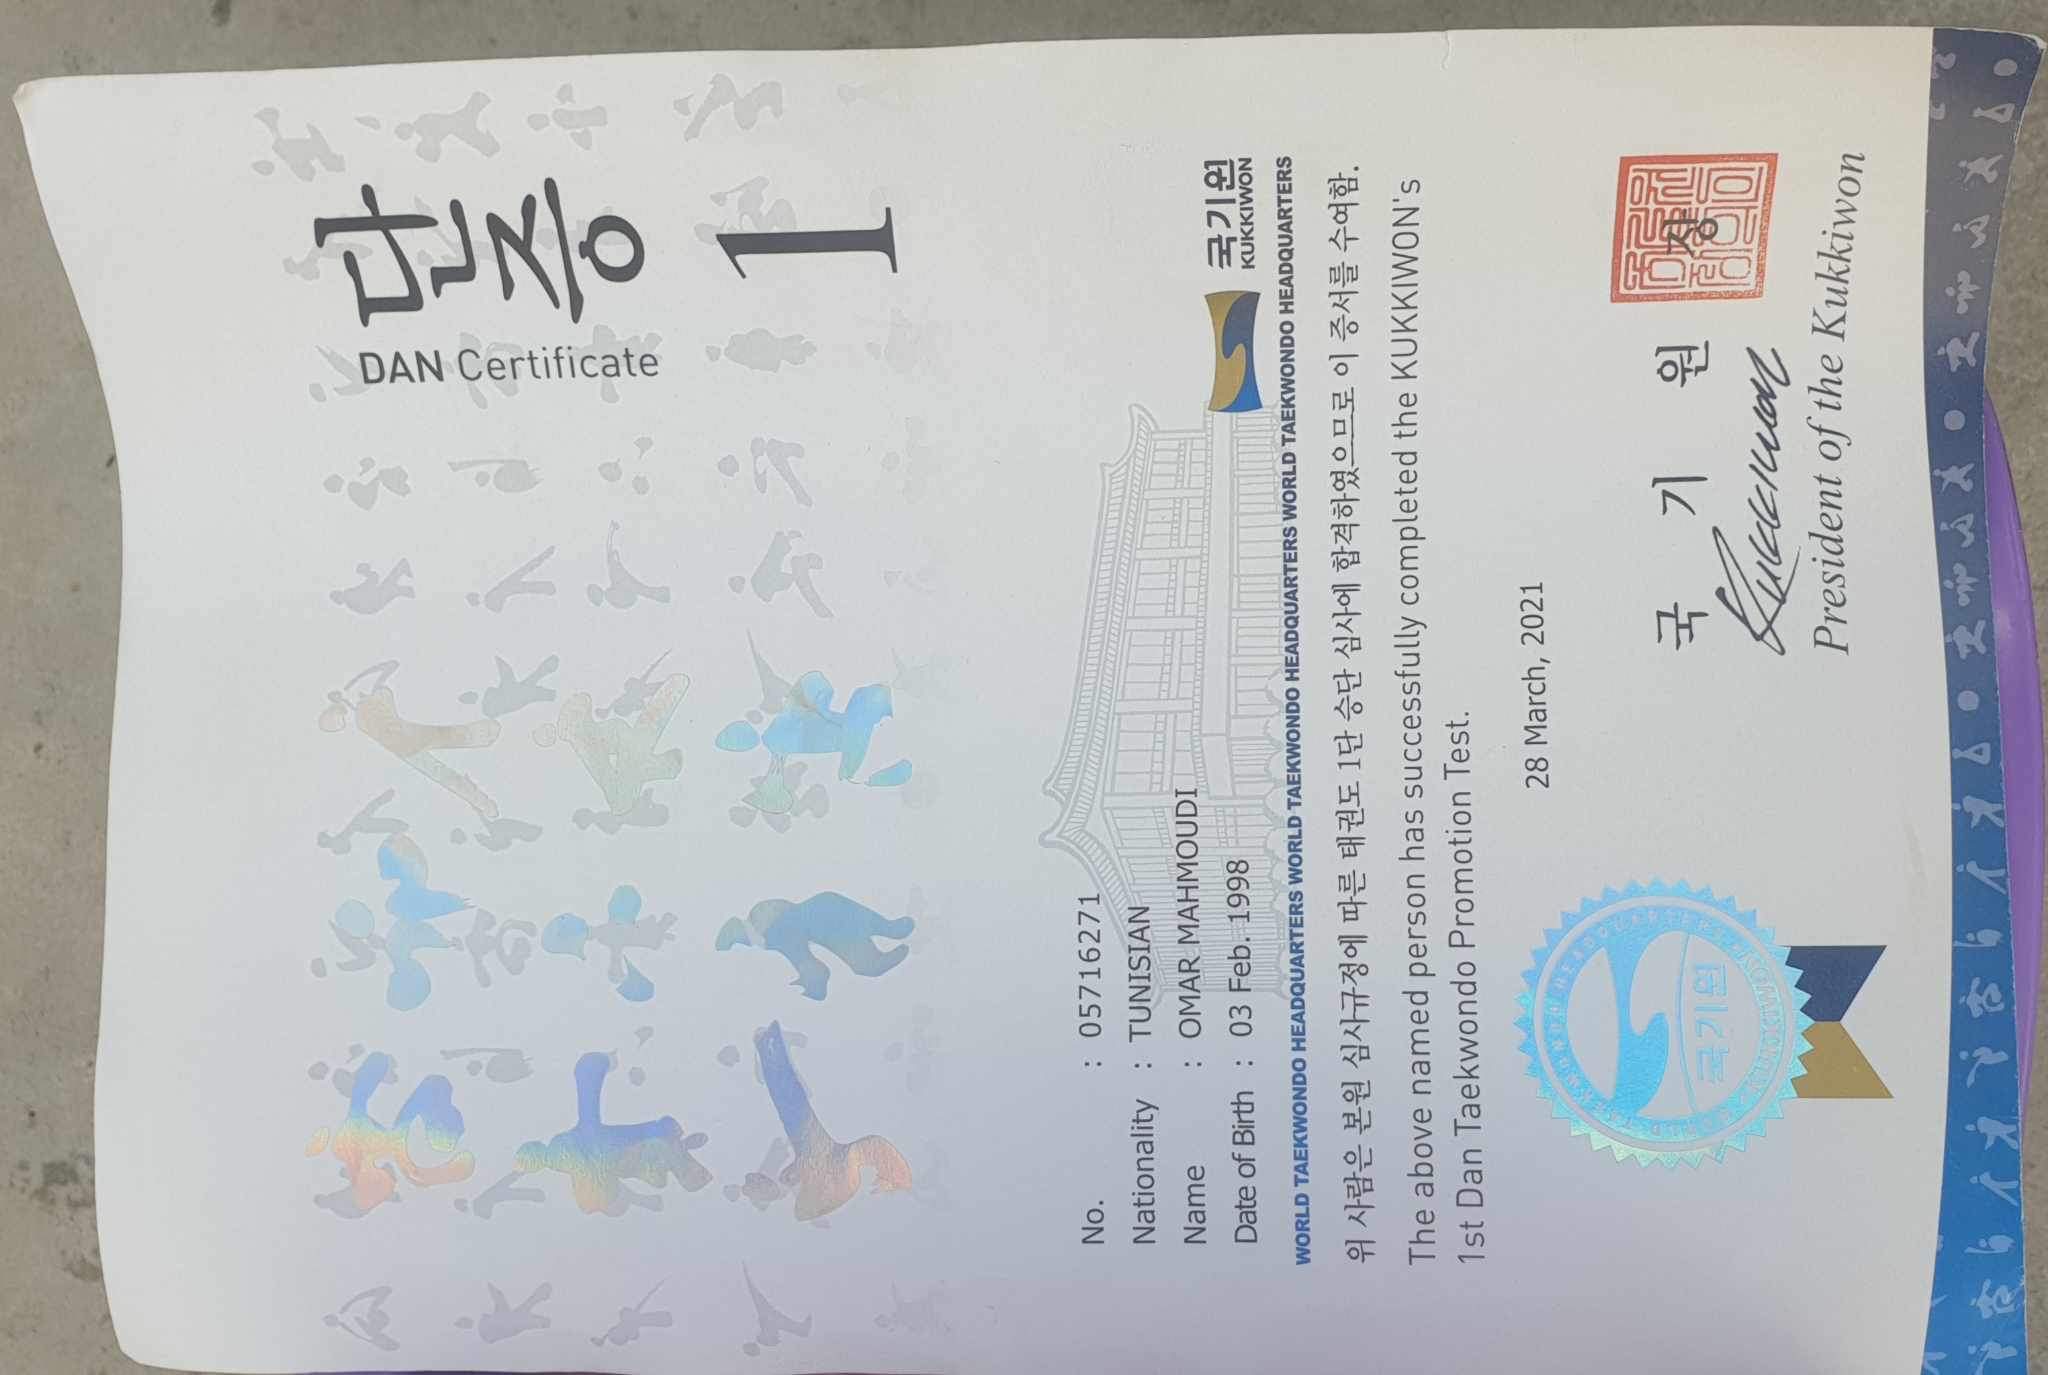 단증
DAN Certificate
1
No. : 05716271
Nationality : TUNISIAN
Name : OMAR MAHMOUDI
Date of Birth : 03 Feb. 1998
국기원
KUKKIWON
WORLD TAEKWONDO HEADQUARTERS WORLD TAEKWONDO HEADQUARTERS WORLD TAEKWONDO HEADQUARTERS WORLD TAEKWONDO HEADQUARTERS
위 사람은 본원 심사규정에 따른 태권도 1단 승단 심사에 합격하였으므로 이 증서를 수여함.
The above named person has successfully completed the KUKKIWON's
1st Dan Taekwondo Promotion Test.
28 March, 2021
국 기 원 장
Kukkiwon
President of the Kukkiwon
국기원